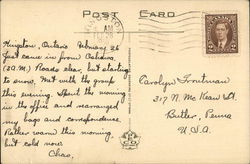 POST CARD
AM
2
Kingston, Ontario February 26
Just came in from Oshawa
(20 M.) Roads clear, but starting
to snow. Met with the group
this evening. Spent the morning
in the office and rearranged
my bags and correspondence.
Rather warm this morning
but cold now
Chao,
Carolyn Troutman
317 N. Mc Kean St.
Butler, Penna
U.S.A.